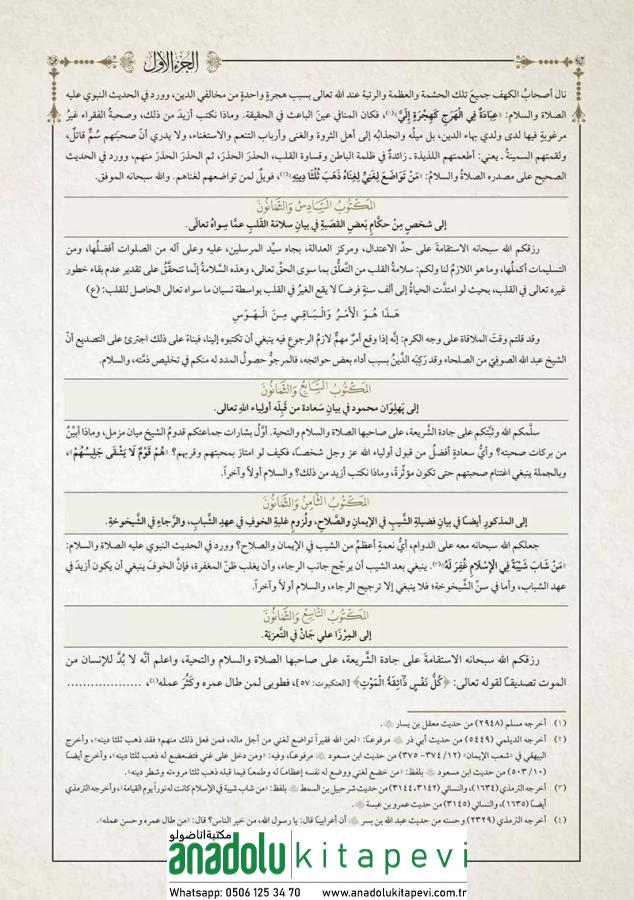 الجزء الأول
نال أصحابُ الكهف جميعَ تلك الحشمة والعظمة والرتبة عند الله تعالى بسبب هجرةٍ واحدةٍ من مخالفي الدين، وورد في الحديث النبوي عليه
الصلاة والسلام: «عِبَادَةٌ فِي الْهَرْجِ كَهِجْرَةٍ إِلَيَّ»(١)، فكان المنافي عينَ الباعث في الحقيقة. وماذا نكتب أزيدَ من ذلك، وصحبةُ الفقراء غيرُ
مرغوبةٍ فيها لدى ولدي بهاء الدين، بل ميلُه وانجذابُه إلى أهل الثروة والغنى وأرباب التنعم والاستغناء، ولا يدري أنّ صحبتَهم سُمٌّ قاتلٌ،
ولقمتهم السمينةُ ـ يعني: أطعمتهم اللذيذة ـ زائدةٌ في ظلمة الباطن وقساوة القلب، الحذرَ الحذرَ، ثم الحذرَ الحذرَ منهم، وورد في الحديث
الصحيح على مصدره الصلاةُ والسلامُ: «مَنْ تَوَاضَعَ لِغَنِيٍّ لِغِنَاهُ ذَهَبَ ثُلُثَا دِينِهِ»(٢)، فويلٌ لمن تواضعهم لغناهم. والله سبحانه الموفق.
المكتوب السادس والثمانون
إلى شخصٍ مِنْ حكَّامِ بَعضِ القصَبةِ في بيانِ سلامَة القَلبِ عمَّا سِواهُ تعالَى.
رزقكم الله سبحانه الاستقامةَ على حدِّ الاعتدال، ومركز العدالة، بجاه سيِّد المرسلين، عليه وعلى آله من الصلوات أفضلُها، ومن
التسليمات أكملُها، وما هو اللازمُ لنا ولكم: سلامةُ القلب من التعلُّق بما سوى الحقِّ تعالى، وهذه السلامةُ إنَّما تتحقَّقُ على تقدير عدم بقاء خطور
غيره تعالى في القلب، بحيث لو امتدَّت الحياةُ إلى ألف سنةٍ فرضاً لا يقع الغيرُ في القلب بواسطة نسيان ما سواه تعالى الحاصل للقلب: (ع)
هَـذَا هُـوَ الأَمْـرُ وَالْـبَـاقِـي مِـنَ الْـهَـوَسِ
وقد قلتم وقتَ الملاقاة على وجه الكرم: إنَّه إذا وقع أمرٌ مهمٌّ لازمُ الرجوع فيه ينبغي أن تكتبوه إلينا، فبناءً على ذلك اجترئ على التصديع أنّ
الشيخ عبد الله الصوفيَّ من الصلحاء وقد رَكِبَه الدَّينُ بسبب أداء بعض حوائجه، فالمرجوُّ حصولُ المدد له منكم في تخليص ذمَّته، والسلام.
المكتوب السابع والثمانون
إلى بَهلِوَان محمود في بيانِ سَعادة من قَبِلَه أولياء اللهِ تعالى.
سلَّمكم الله وثبَّتكم على جادة الشَّريعة، على صاحبها الصلاة والسلام والتحية. أوَّلُ بشارات جماعتكم قدومُ الشيخ ميان مزمل، وماذا أبيِّنُ
من بركات صحبته؟ وأيُّ سعادةٍ أفضلُ من قبول أولياء الله عز وجل شخصاً، فكيف لو امتاز بمحبتهم وقربهم؟ «هُمْ قَوْمٌ لَا يَشْقَى جَلِيسُهُمْ»،
وبالجملة ينبغي اغتنام صحبتهم حتى تكون مؤثِّرةً، وماذا نكتب أزيد من ذلك؟ والسلام أولاً وآخراً.
المكتوب الثامن والثمانون
إلى المذكورِ أيضاً في بيانِ فضيلةِ الشَّيبِ في الإيمانِ والصَّلاحِ، ولُزومِ غلبةِ الخوفِ في عهدِ الشَّبابِ، والرَّجاءِ في الشَّيخوخةِ.
جعلكم الله سبحانه معه على الدوام، أيُّ نعمةٍ أعظمُ من الشيب في الإيمان والصلاح؟ وورد في الحديث النبوي عليه الصلاة والسلام:
«مَنْ شَابَ شَيْبَةً فِي الْإِسْلَامِ غُفِرَ لَهُ»(٣). ينبغي بعد الشيب أن يرجَّح جانب الرجاء، وأن يغلب ظنّ المغفرة، فإنَّ الخوفَ ينبغي أن يكون أزيدَ في
عهد الشباب، وأما في سنِّ الشَّيخوخة؛ فلا ينبغي إلا ترجيح الرجاء، والسلام أولاً وآخراً.
المكتوب التاسع والثمانون
إلى المِرْزَا علي جَانْ في التَّعزِيَة.
رزقكم الله سبحانه الاستقامةَ على جادة الشَّريعة، على صاحبها الصلاة والسلام والتحية، واعلم أنَّه لا بُدَّ للإنسان من
الموت تصديقاً لقوله تعالى: ﴿كُلُّ نَفْسٍ ذَآئِقَةُ الْمَوْتِ﴾ [العنكبوت: ٥٧]، فطوبى لمن طال عمره وكَثُرَ عمله(٤)، ...................
(١) أخرجه مسلم (٢٩٤٨) من حديث معقل بن يسار ﷺ.
(٢) أخرجه الديلمي (٥٤٤٩) من حديث أبي ذر مرفوعاً: «لعن الله فقيراً تواضع لغني من أجل ماله، فمن فعل ذلك منهم؛ فقد ذهب ثلثا دينه»، وأخرج
البيهقي في «شعب الإيمان» (١٢/ ٣٧٤- ٣٧٥) من حديث ابن مسعود مرفوعاً، وفيه: «ومن دخل على غني فتضعضع له ذهب ثلثا دينه»، وأخرج أيضاً
(١٠/ ٥٠٣) من حديث ابن مسعود بلفظ: «من خضع لغني ووضع له نفسه إعظاماً له وطمعاً فيما قبله ذهب ثلثا مروءته وشطر دينه».
(٣) أخرجه الترمذي (١٦٣٤)، والنسائي (٣١٤٢، ٣١٤٤) من حديث شرحبيل بن السمط بلفظ: «من شاب شيبة في الإسلام كانت له نوراً يوم القيامة»، وأخرجه الترمذي
أيضاً (١٦٣٥)، والنسائي (٣١٤٥) من حديث عمرو بن عبسة.
(٤) أخرجه الترمذي (٢٣٢٩) وحسنه من حديث عبد الله بن بسر أن أعرابياً قال: يا رسول الله، من خير الناس؟ قال: «من طال عمره وحسن عمله».
مكتبة اناضولو
anadolu kitapevi
Whatsapp: 0506 125 34 70 www.anadolukitapevi.com.tr